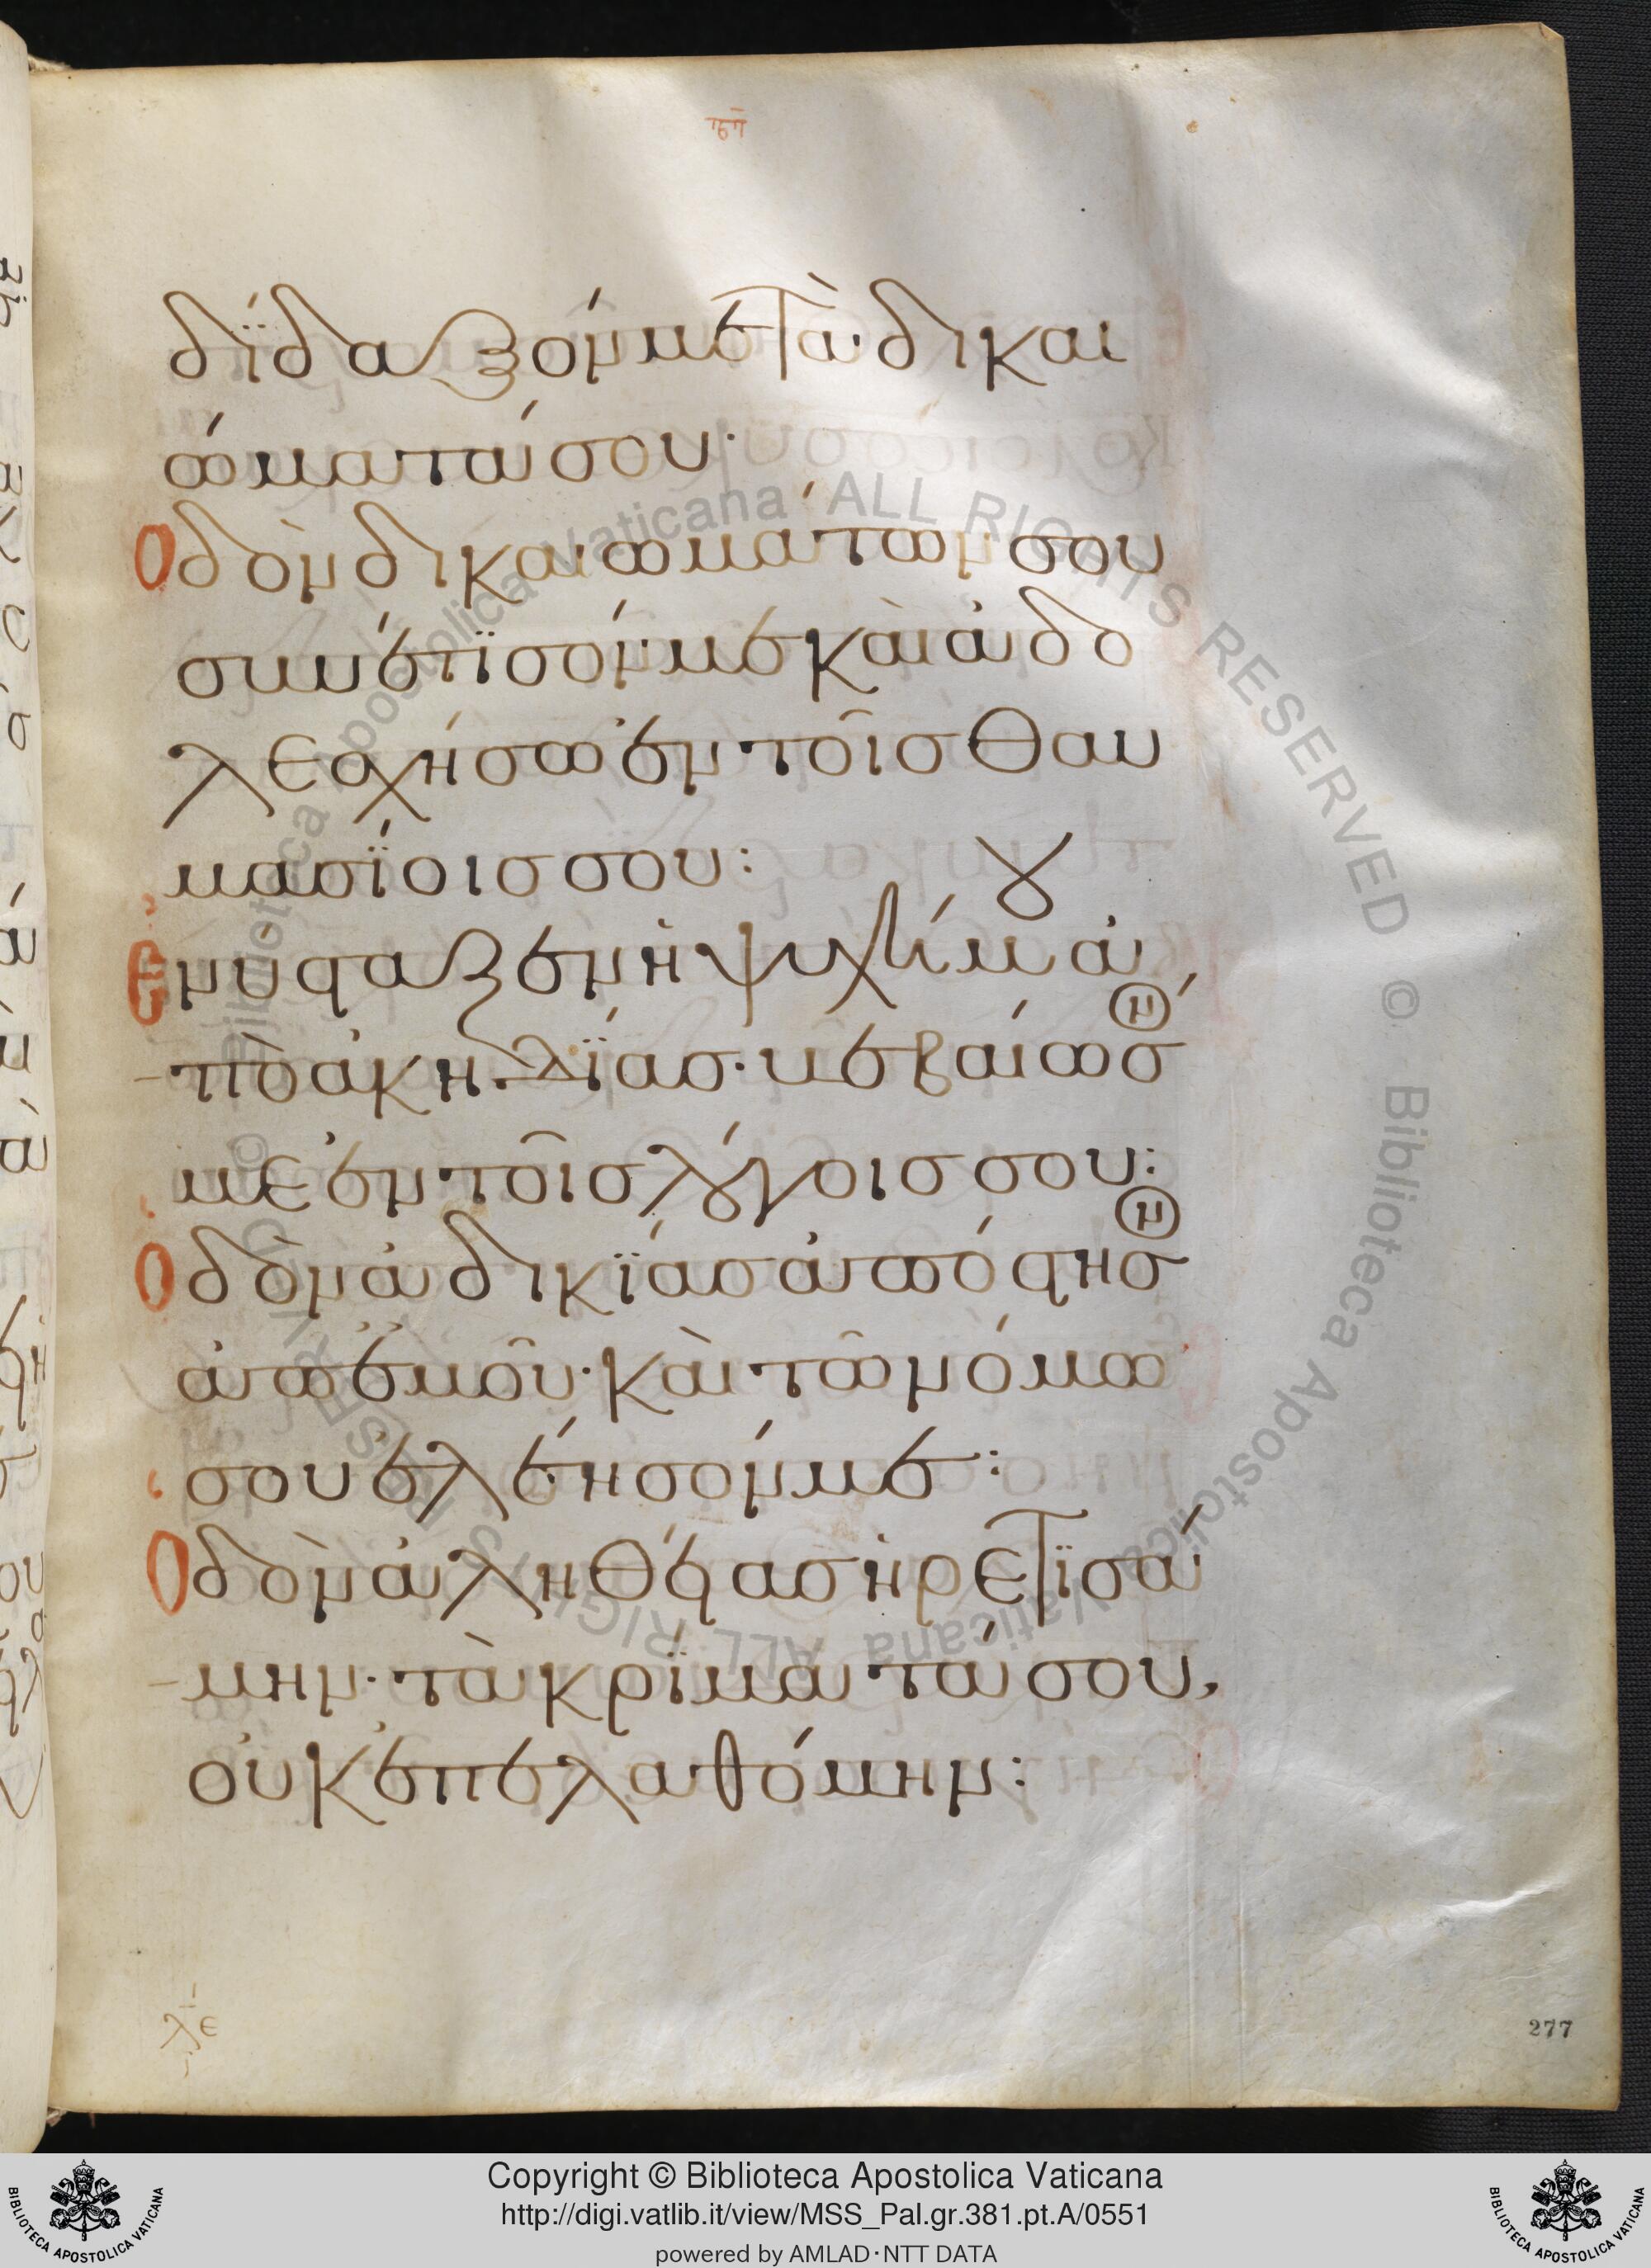 δίδαξόν με τὰ δικαι
ώματά σου·
Ὁδὸν δικαιωμάτων σου
συνέτϊσόν με καὶ ἀδο
λεσχήσω ἐν τοῖς θαυ
μασΐοις σου:
Ἐνύσταξεν ἡ ψυχή μου ἀ
πὸ ἀκηδΐας· βεβαίωσόν
με ἐν τοῖς λόγοις σου:
Ὁδὸν ἀδικΐας ἀπόστησον
ἀπ' ἐμοῦ· καὶ τῶ νόμω
σου ἐλέησόν με:
Ὁδὸν ἀληθείας ἡρετϊσά
μην· τὰ κρΐματά σου,
οὐκ ἐπελαθόμην:
λε
277
Copyright © Biblioteca Apostolica Vaticana
http://digi.vatlib.it/view/MSS_Pal.gr.381.pt.A/0551
powered by AMLAD·NTT DATA
BIBLIOTECA APOSTOLICA VATICANA
BIBLIOTECA APOSTOLICA VATICANA
Biblioteca Apostolica Vaticana ALL RIGHTS RESERVED © Biblioteca Apostolica Vaticana ALL RIGHTS RESERVED ©